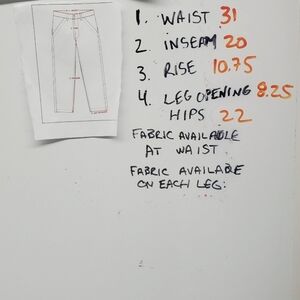 1. WAIST 31
2. INSEAM 20
3. RISE 10.75
4. LEG OPENING 8.25
HIPS 22
FABRIC AVAILABLE
AT WAIST
FABRIC AVAILABLE
ON EACH LEG: